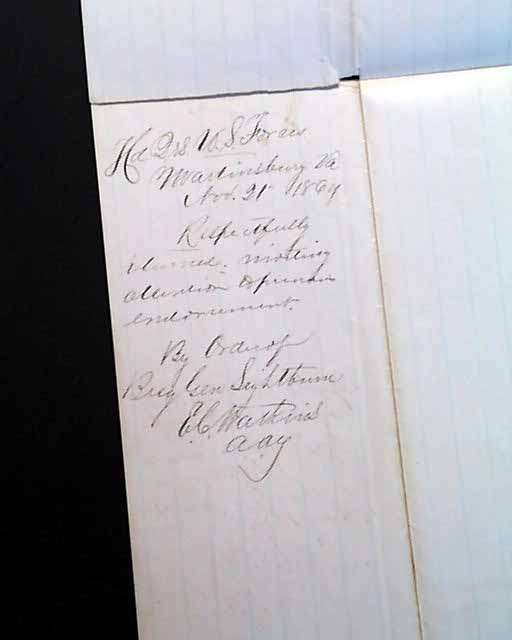 Hd Qrs U.S. Forces
Martinsburg Va
Nov. 21st 1864
Respectfully
returned. inviting
attention to previous
endorsement.
By Order of
Brig Gen Lightburn
E.C. Watkins
A.A.G